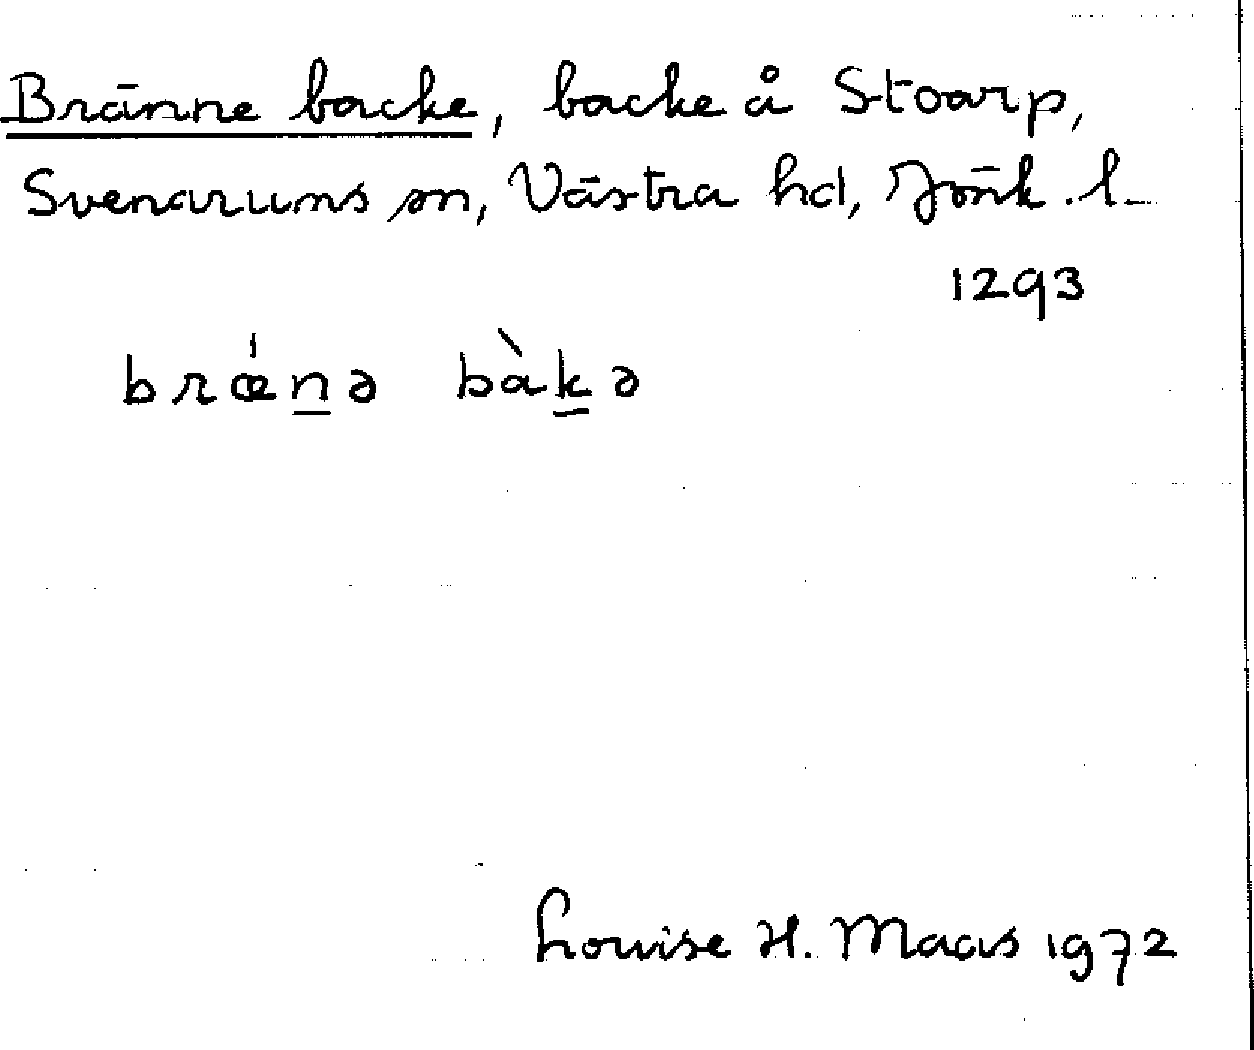 Bränne backe, backe å Stoarp,
Svenarums sn, Västra hd, Jönk. l.
1293
bræ̀nə bàkə
Louise H. Maas 1972